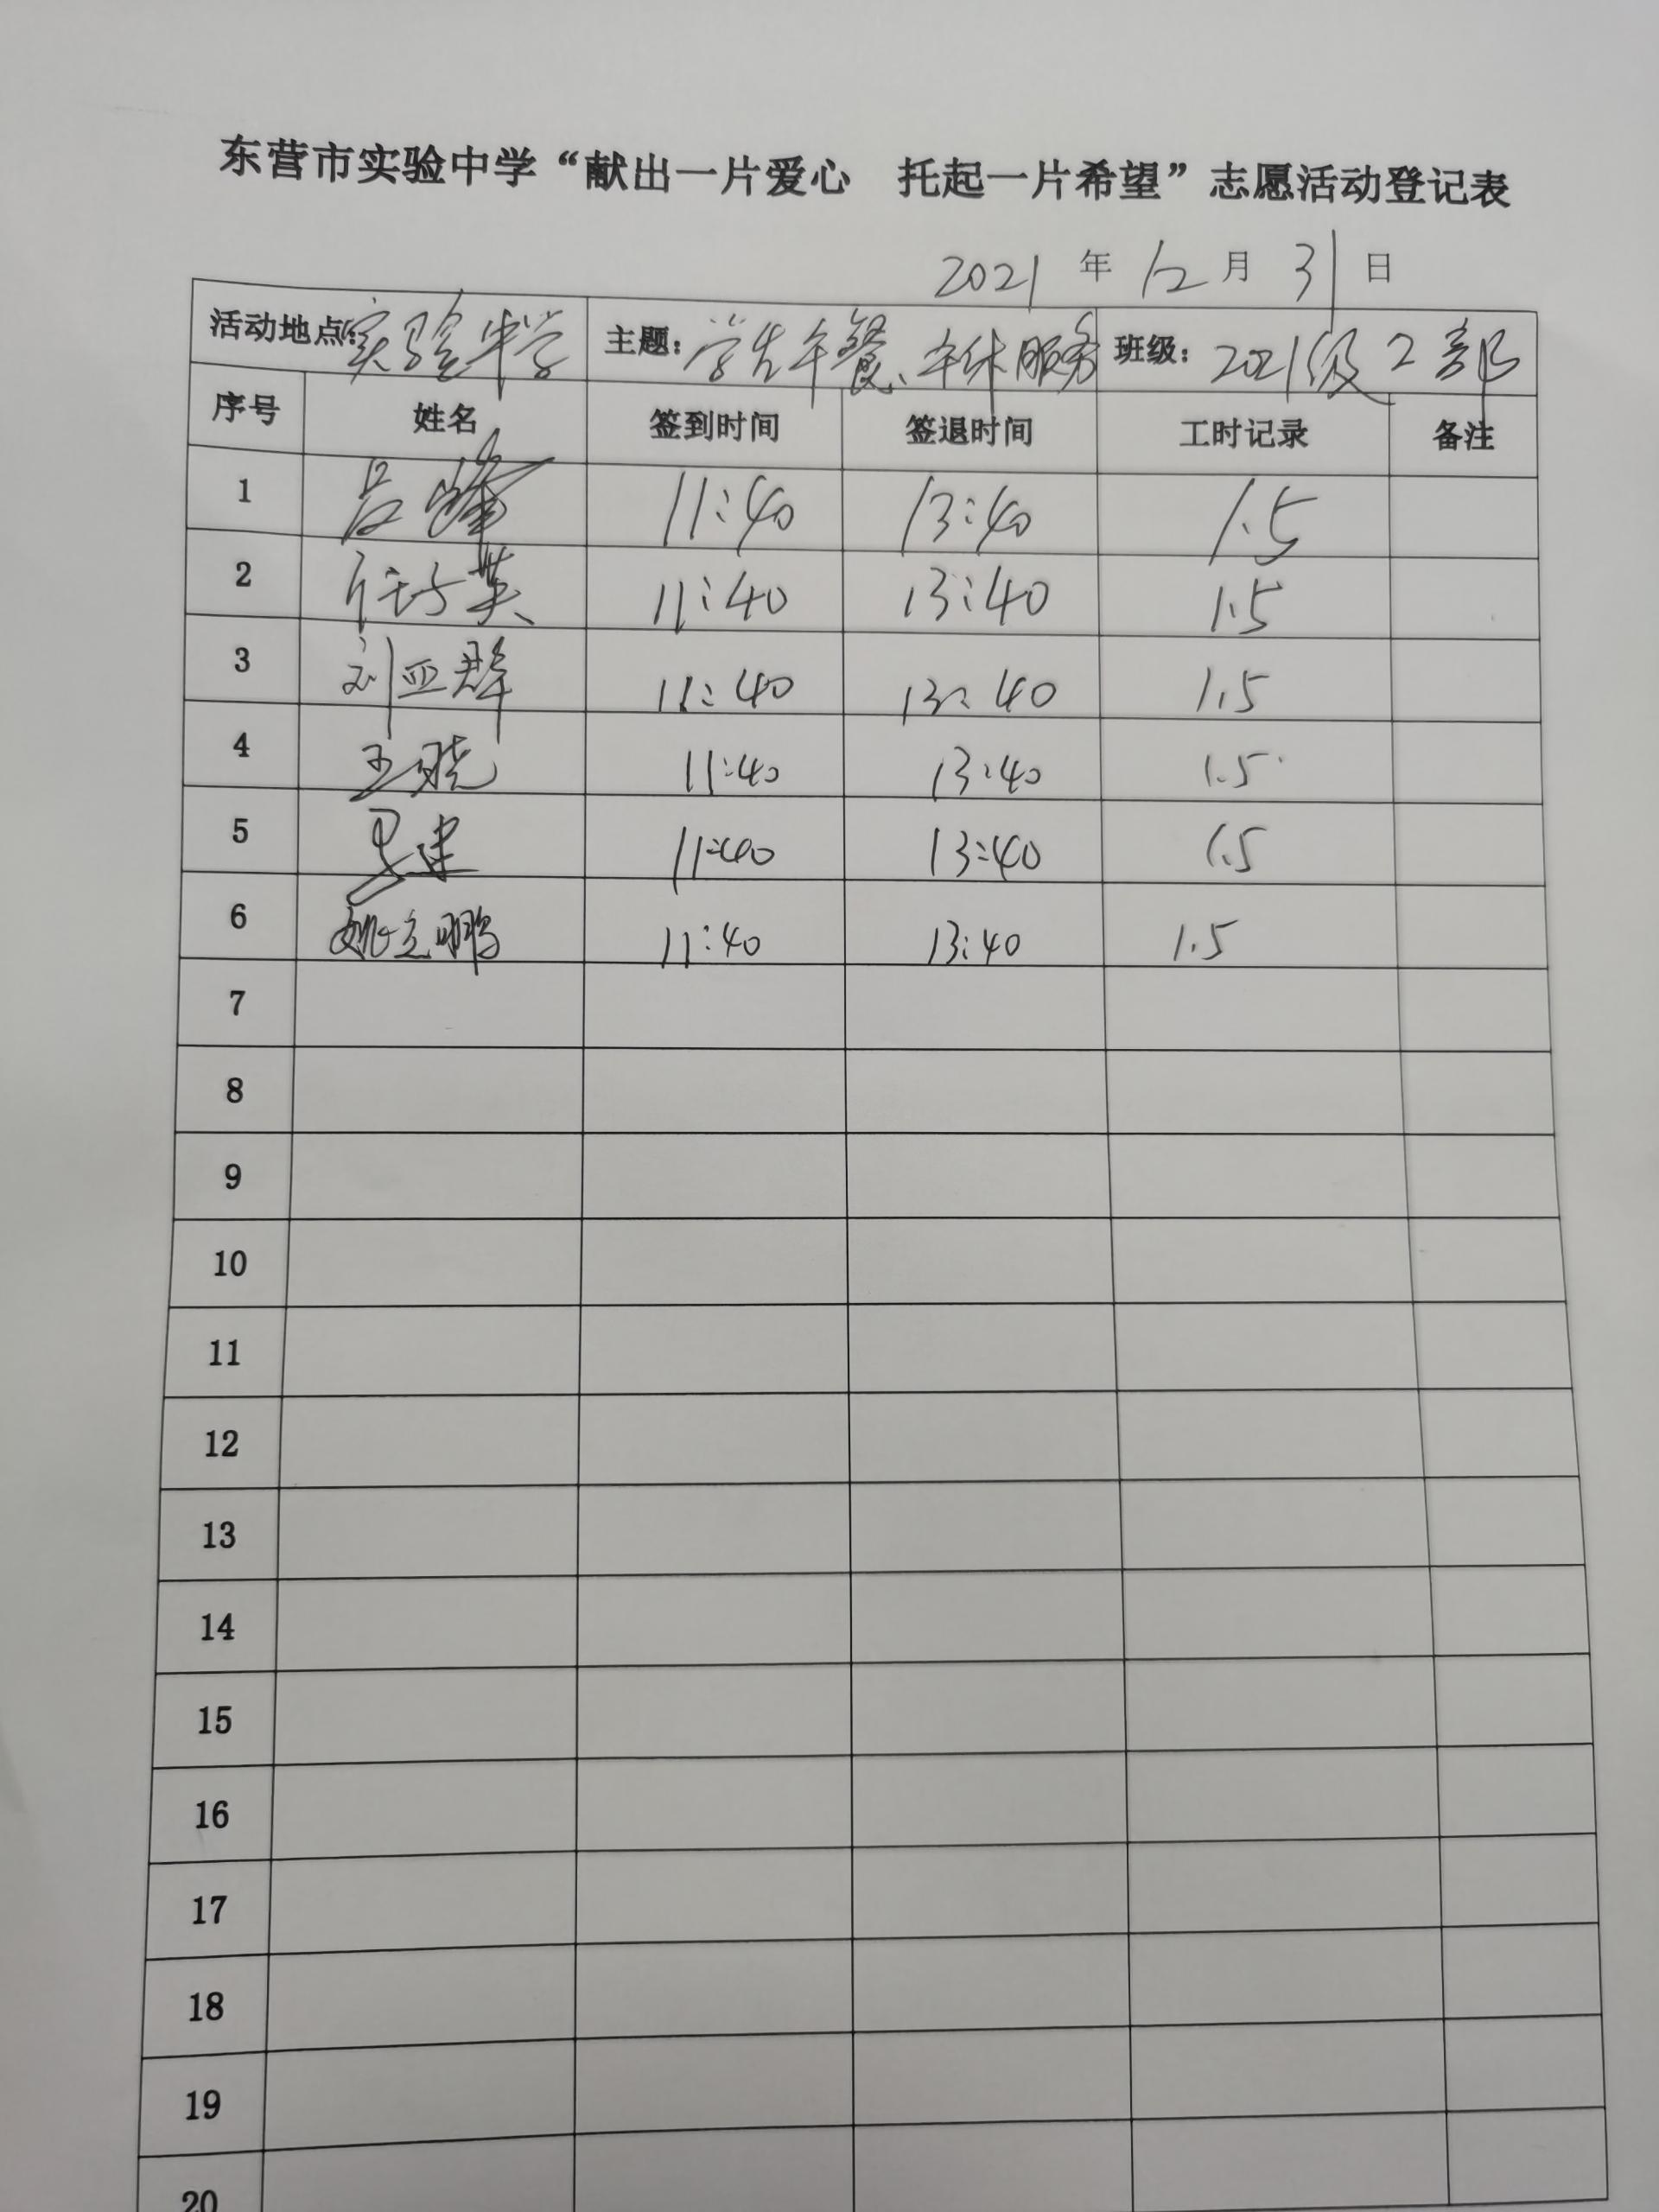 东营市实验中学“献出一片爱心 托起一片希望”志愿活动登记表
2021 年 12 月 31 日
活动地点：实验中学 主题：学生午餐、午休服务 班级：2021级2部
序号 姓名 签到时间 签退时间 工时记录 备注
1 吕峰 11:40 13:40 1.5
2 任英 11:40 13:40 1.5
3 刘亚群 11:40 13:40 1.5
4 王晓 11:40 13:40 1.5
5 11:40 13:40 1.5
6 姚立鹏 11:40 13:40 1.5
7
8
9
10
11
12
13
14
15
16
17
18
19
20